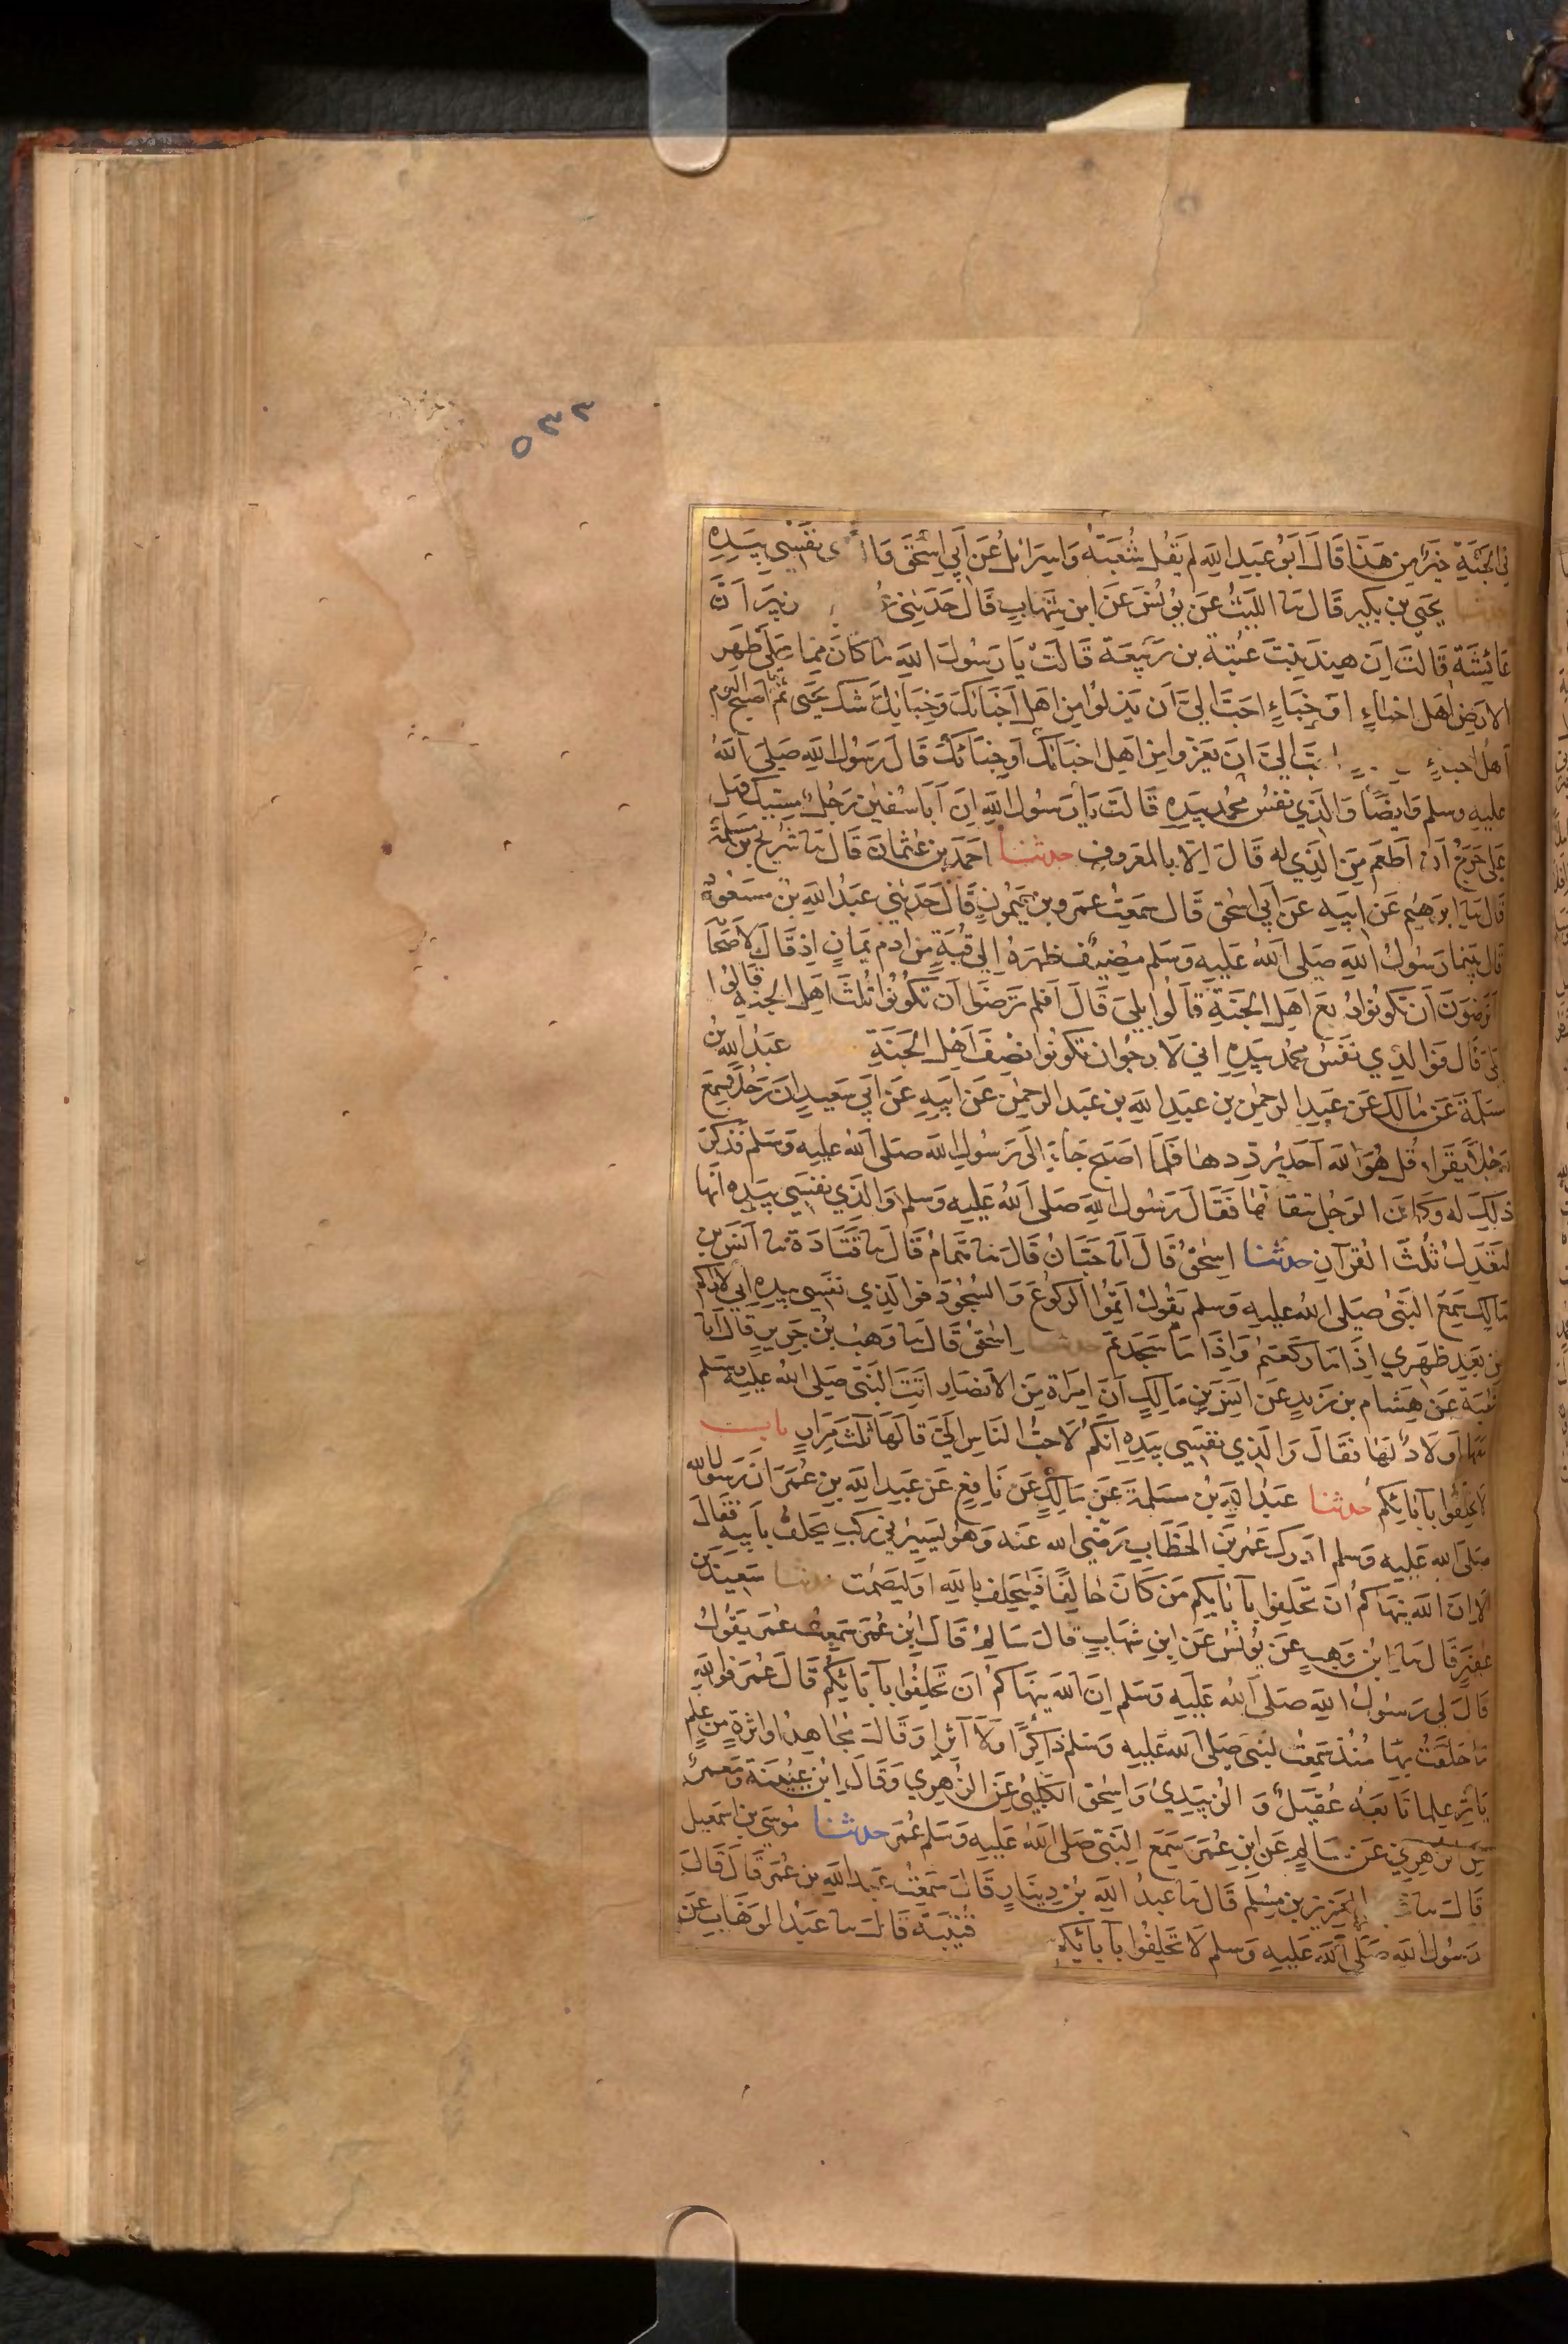 ٥٣٣
في الجنة خير من هذا قال ابو عبد الله لم يقل شعبة واسرائل عن ابي اسحق نفسي بيده
يحيى بن بكير قال نا الليث عن يونس عن ابن شهاب قال حدثني ان
عائشة قالت ان هند بنت عتبة بن ربيعة قالت يا رسول الله ما كان مما على ظهر
الارض اهل اخباء او خباء احب الي ان يذلوا من اهل اخبائك وخبائك شك يحيى ثم ما اصبح اليوم
اهل الي ان يعزوا من اهل اخبائك او خبائك قال رسول الله صلى الله
عليه وسلم وايضا والذي نفس محمد بيده قالت يا رسول الله ان ابا سفين رجل مسيك فهل
علي حرج ان اطعم من الذي له قال الا بالمعروف حدثنا احمد بن عثمان قال نا شريح بن مسلمة
قال نا ابرهيم عن ابيه عن ابي اسحق قال سمعت عمرو بن ميمون قال حدثني عبد الله بن مسعود
قال بينما رسول الله صلى الله عليه وسلم مضيف ظهره الى قبة من ادم يمان اذ قال لاصحا
اترضون ان تكونوا ربع اهل الجنة قالوا بلى قال افلم ترضوا ان تكونوا ثلث اهل الجنة قالوا
بلى قال فوالذي نفس محمد بيده اني لارجوا ان تكونوا نصف اهل الجنة عبد الله بن
مسلمة عن مالك عن عبد الرحمن بن عبد الله بن عبد الرحمن عن ابيه عن ابي سعيد ان رجلا سمع
رجلا يقرا قل هو الله احد يرددها فلما اصبح جاء الى رسول الله صلى الله عليه وسلم فذكر
ذلك له وكان الرجل يتقالها فقال رسول الله صلى الله عليه وسلم والذي نفسي بيده انها
لتعدل ثلث القرآن حدثنا اسحق قال انا حبان قال نا همام قال نا قتادة نا انس بن
مالك سمع النبي صلى الله عليه وسلم يقول اتموا الركوع والسجود فوالذي نفسي بيده اني لاراكم
من بعد ظهري اذا ما ركعتم واذا ما سجدتم حدثنا اسحق قال نا وهب بن جرير قال انا
شعبة عن هشام بن زيد عن انس بن مالك ان امراة من الانصار اتت النبي صلى الله عليه وسلم
معها اولاد لها فقال والذي نفسي بيده انكم لاحب الناس الي قالها ثلث مرار باب
لا تحلفوا بآبائكم حدثنا عبد الله بن مسلمة عن مالك عن نافع عن عبد الله بن عمر ان رسول الله
صلى الله عليه وسلم ادرك عمر بن الخطاب رضي الله عنه وهو يسير في ركب يحلف بابيه فقال
الا ان الله ينهاكم ان تحلفوا بآبايكم من كان حالفا فليحلف بالله او ليصمت حدثنا سعيد بن
عفير قال نا ابن وهب عن يونس عن ابن شهاب قال سالم قال ابن عمر سمعت عمر يقول
قال لي رسول الله صلى الله عليه وسلم ان الله ينهاكم ان تحلفوا بآبائكم قال عمر فوالله
ما حلفت بها منذ سمعت النبي صلى الله عليه وسلم ذاكرا ولا آثرا وقال مجاهد او اثرة من علم
ياثر علما تابعه عقيل والزبيدي واسحق الكلبي عن الزهري وقال ابن عيينة ومعمر
عن الزهري عن سالم عن ابن عمر سمع النبي صلى الله عليه وسلم عمر حدثنا موسى بن اسمعيل
قال نا العزيز بن مسلم قال نا عبد الله بن دينار قال سمعت عبد الله بن عمر قال قال
رسول الله صلى الله عليه وسلم لا تحلفوا بآبائكم قتيبة قال نا عبد الوهاب عن